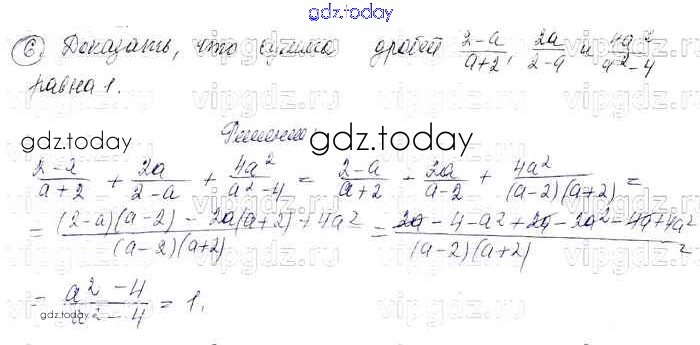 gdz.today
6) Доказать, что сумма дробей (2-a)/(a+2), 2a/(2-a) и 4a²/(a²-4)
равна 1.
Решение:
gdz.today gdz.today
(2-a)/(a+2) + 2a/(2-a) + 4a²/(a²-4) = (2-a)/(a+2) - 2a/(a-2) + 4a²/((a-2)(a+2)) =
= ((2-a)(a-2) - 2a(a+2) + 4a²)/((a-2)(a+2)) = (2a-4-a²+2a-2a²-4a+4a²)/((a-2)(a+2)) =
= (a²-4)/(a²-4) = 1.
gdz.today gdz.today
vipgdz.ru